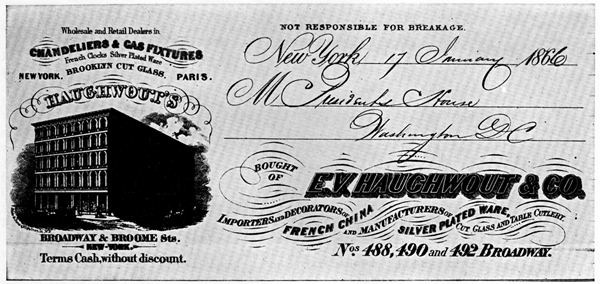 Wholesale and Retail Dealers in
CHANDELIERS & GAS FIXTURES
French Clocks Silver Plated Ware
BROOKLYN CUT GLASS.
NEW YORK. PARIS.
HAUGHWOUT'S
BROADWAY & BROOME Sts.
NEW-YORK.
Terms Cash, without discount.
NOT RESPONSIBLE FOR BREAKAGE.
New York, 17 January 1866
M Presidents House
Washington D C
BOUGHT
OF
E.V. HAUGHWOUT & CO.
IMPORTERS AND DECORATORS OF
FRENCH CHINA
AND MANUFACTURERS OF
SILVER PLATED WARE,
CUT GLASS AND TABLE CUTLERY.
Nos 488, 490 and 492 BROADWAY.